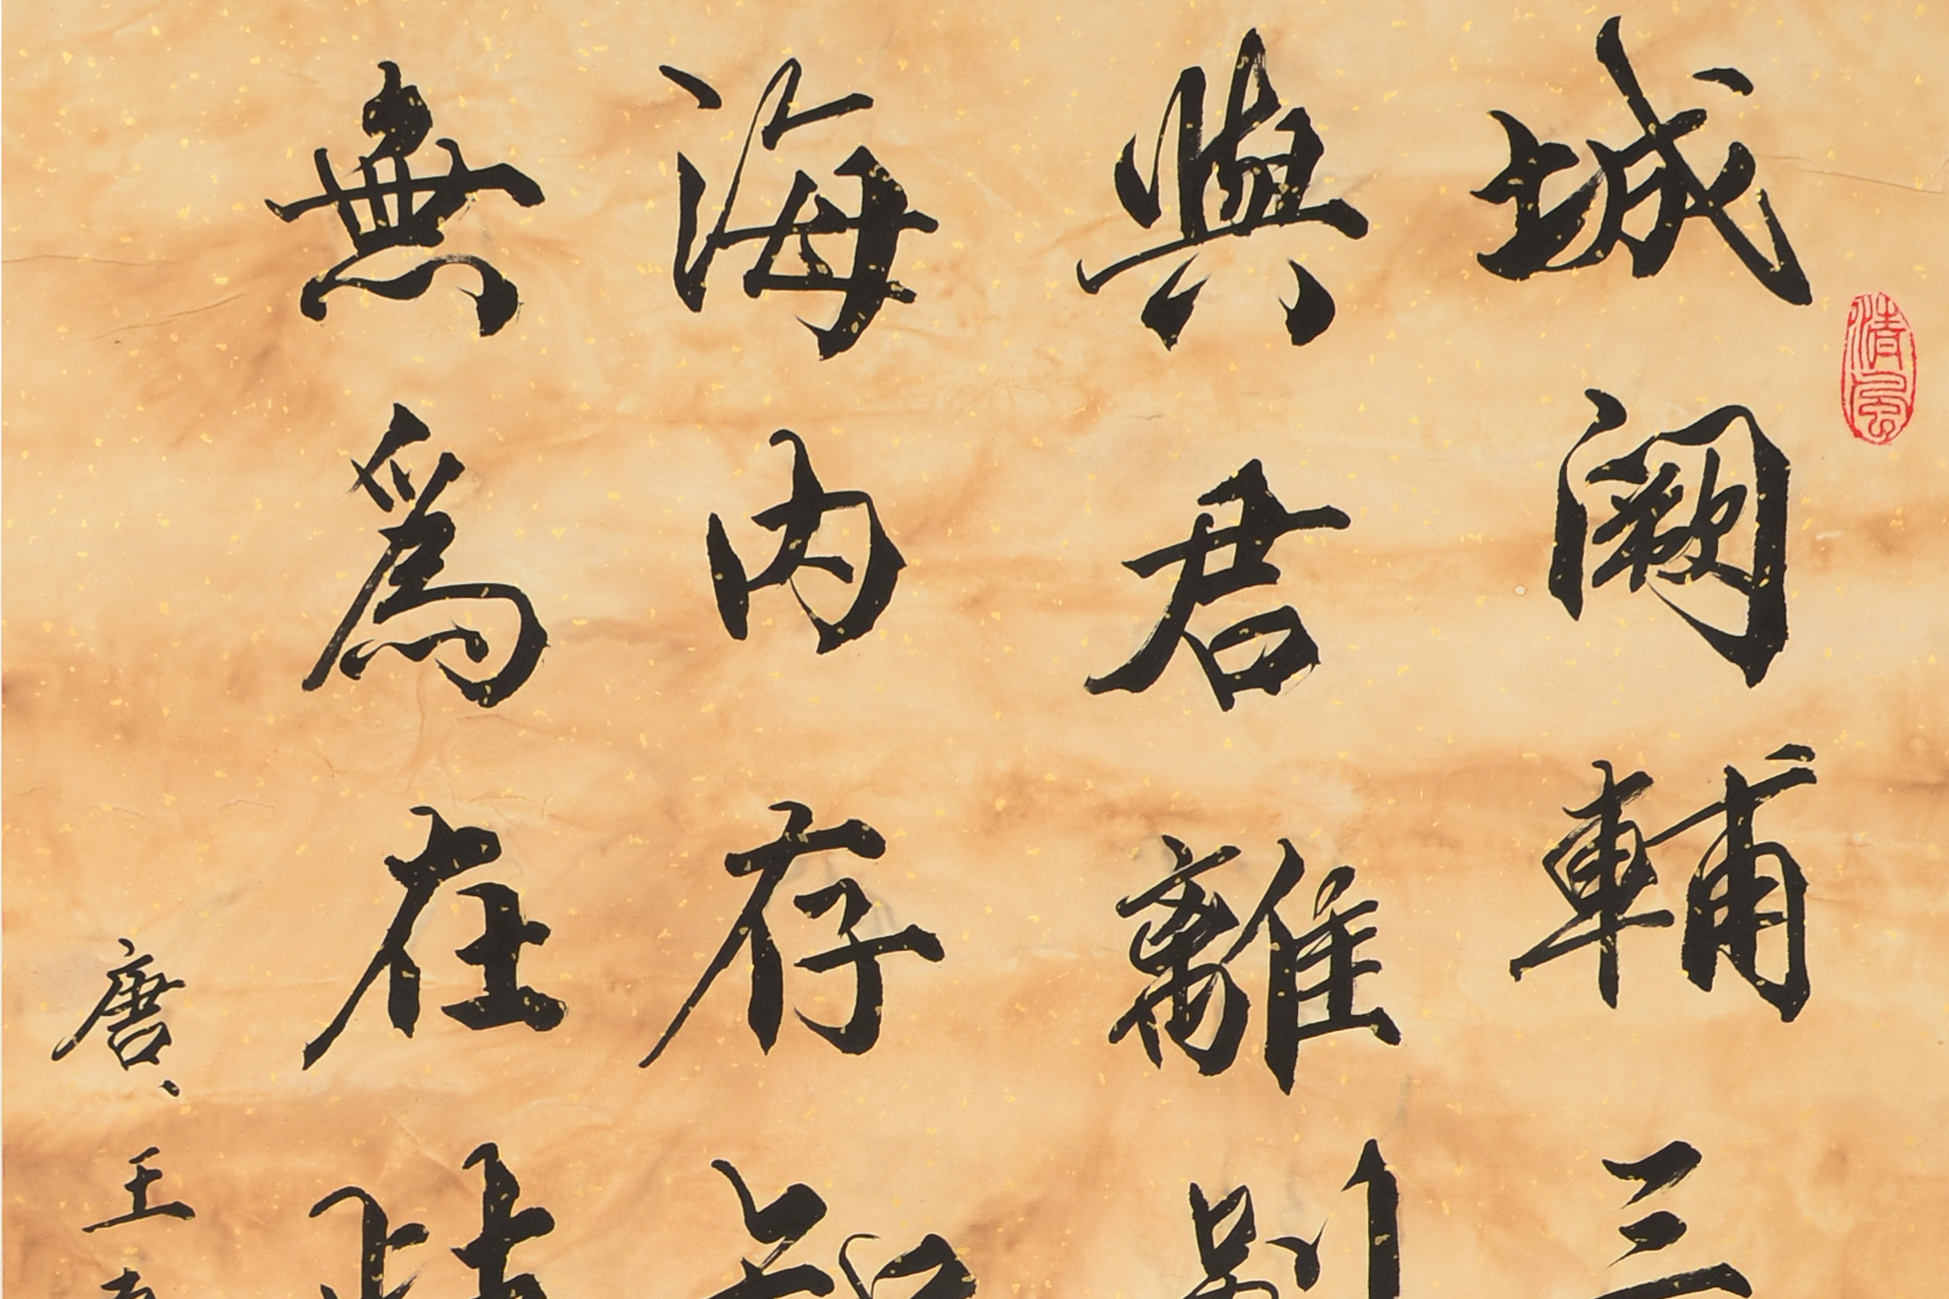 清風
城闕輔三
與君離別
海内存知
無爲在歧
唐、王